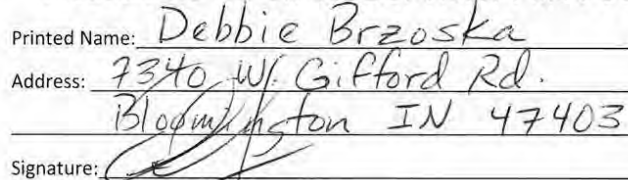 Printed Name: Debbie Brzoska
Address: 7340 W. Gifford Rd.
Bloomington IN 47403
Signature: